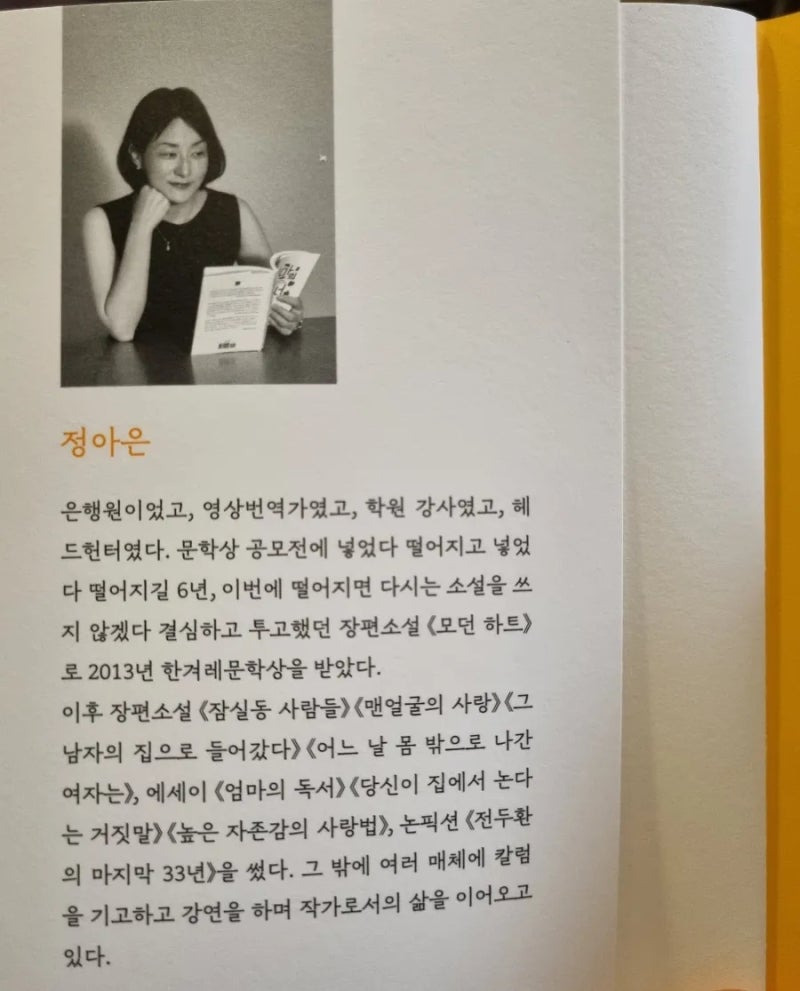 정아은
은행원이었고, 영상번역가였고, 학원 강사였고, 헤
드헌터였다. 문학상 공모전에 넣었다 떨어지고 넣었
다 떨어지길 6년, 이번에 떨어지면 다시는 소설을 쓰
지 않겠다 결심하고 투고했던 장편소설 《모던 하트》
로 2013년 한겨레문학상을 받았다.
이후 장편소설 《잠실동 사람들》 《맨얼굴의 사랑》 《그
남자의 집으로 들어갔다》 《어느 날 몸 밖으로 나간
여자는》, 에세이 《엄마의 독서》 《당신이 집에서 논다
는 거짓말》 《높은 자존감의 사랑법》, 논픽션 《전두환
의 마지막 33년》을 썼다. 그 밖에 여러 매체에 칼럼
을 기고하고 강연을 하며 작가로서의 삶을 이어오고
있다.